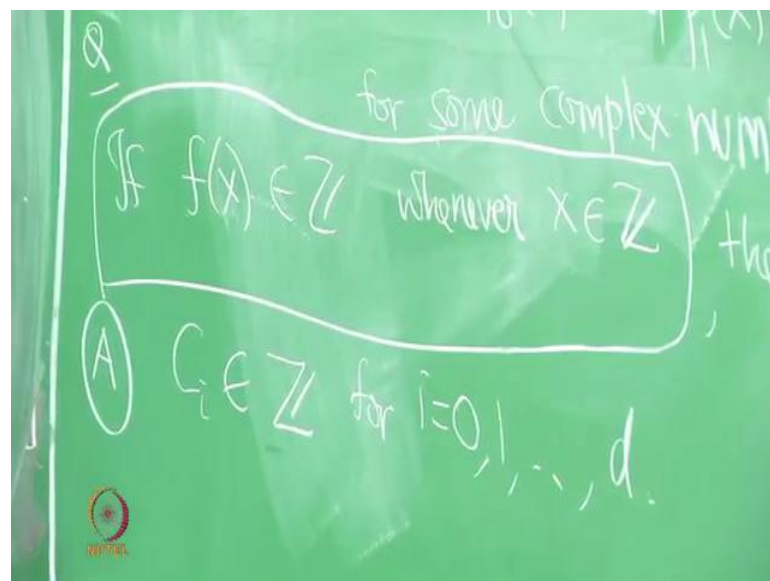 Q
for some complex
If f(x) ∈ ℤ whenever x ∈ ℤ,
A C_i ∈ ℤ for i=0,1,..,d.
NPTEL